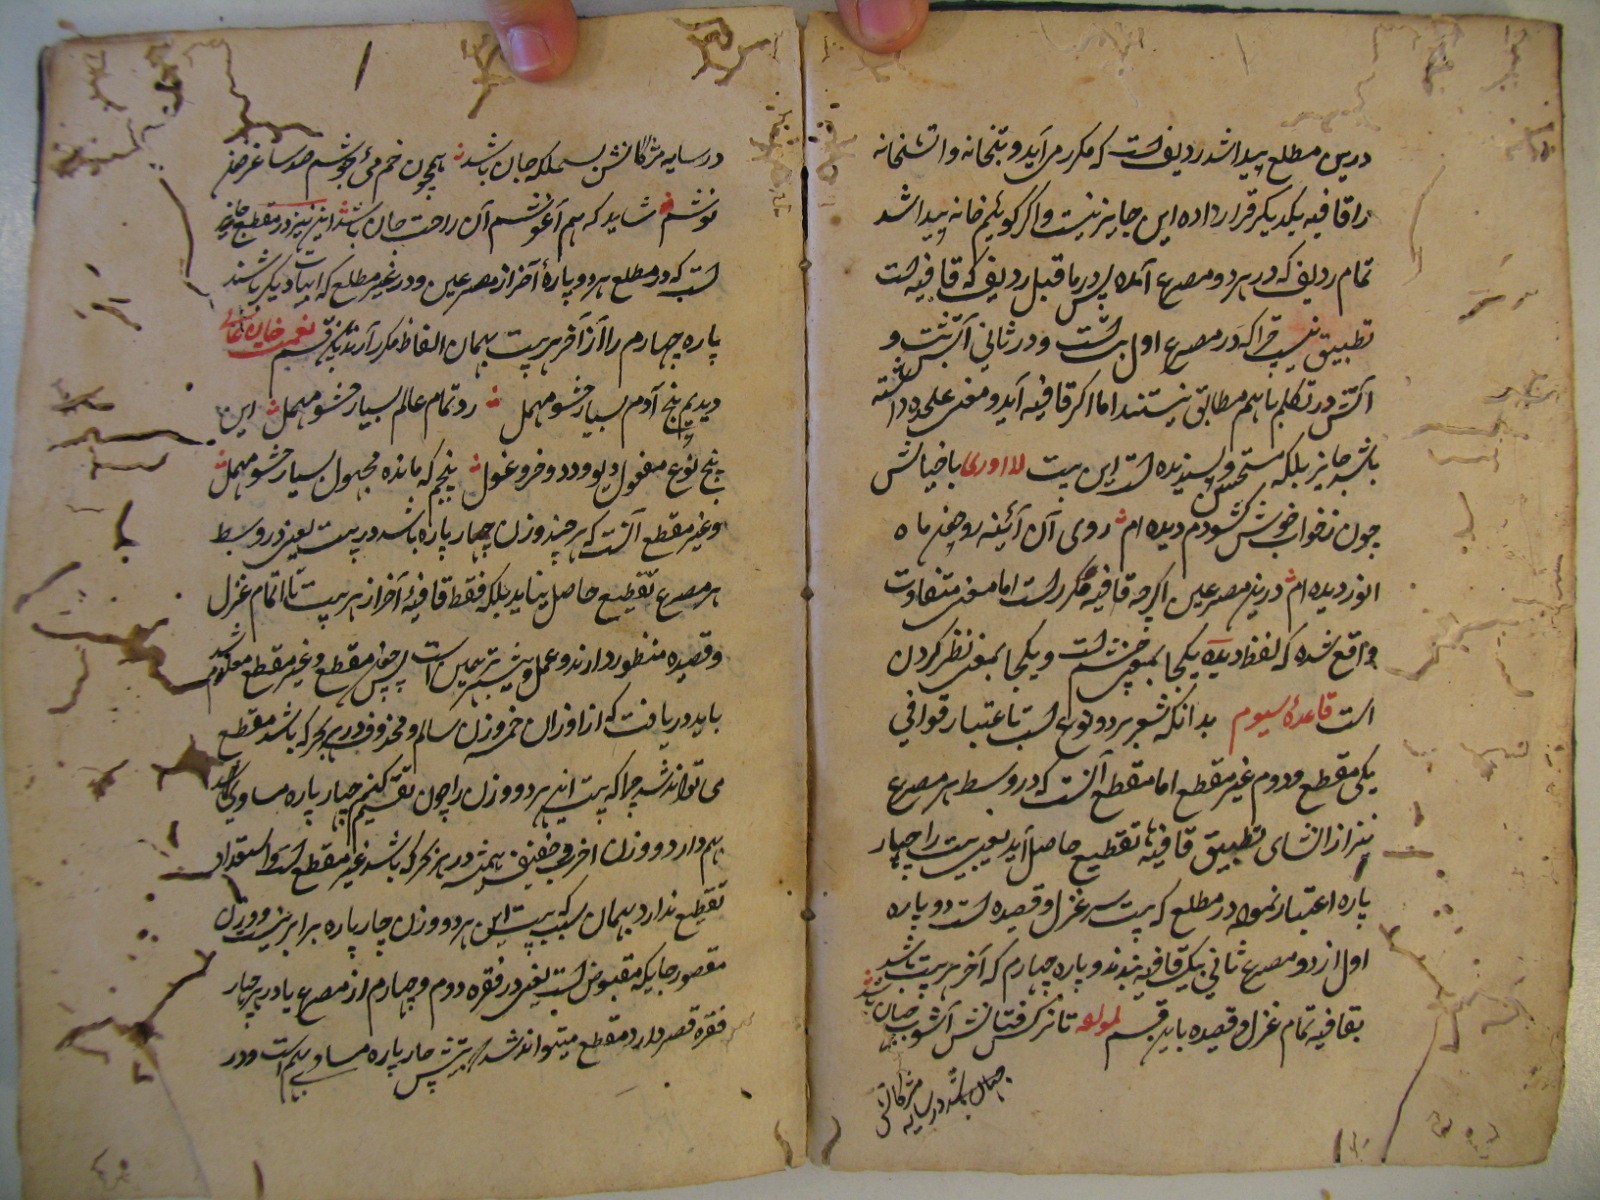 درین مطلع پیدا شد ردیف است که مکرر می آید و بتخانه و آتشخانه
را قافیه یکدیگر قرار داده این جایز نیست و اگر گوئیم خانه پیدا شد
تمام ردیف که در هر دو مصرع آمده پس در ما قبل ردیف که قافیه است
تطبیق نیست چرا که در مصرع اول بت است و در ثانی آتش است و
آتش در تکلم باهم مطابق نیستند اما اگر قافیه آید و معنی علیحده داشته
باشد جایز بلکه مستحسن و پسندیده است این بیت لا ادری با خیالش
چون ز خواب خوش گشودم دیده ام روی آن آئینه رو همچو ماه
انور دیده ام درین مصرعین اگرچه قافیه مکرر است اما معنی متفاوت
واقع شده که لفظ دیده یکجا بمعنی چشم است و یکجا بمعنی نظر کردن
است قاعدهٔ سیوم بدانکه شعر بر دو نوع است باعتبار قوافی
یکی مقطع و دوم غیر مقطع اما مقطع آنست که در وسط هر مصرع
نیز از انشای تطبیق قافیها تقطیع حاصل آید یعنی بیت را چهار
پاره اعتبار نموده در مطلع که بیت سر غزل و قصیده است دو پاره
اول از دو مصرع ثانی بیک قافیه بندند و پاره چهارم که آخر هر بیت باشد
بقافیه تمام غزل و قصیده باید قسم لمولفه تا نرگس فتانش آشوب جهان باشد
در سایه مژگانش
در سایه مژگانش بسملکه جان باشد همچون خم می جوشم صد ساغر
نوشم شاید که هم آغوشم آن راحت جان باشد این نیز در مقطع
است که در مطلع هر دو پارهٔ آخر از مصرعین و در غیر مطلع که ابیات دیگر باشند
پاره چهارم را از آخر هر بیت بهمان الفاظ مکرر آرند قسم نعمت خان عالی
دیدیم پنج آدم بسیار حشو مهمل در تمام عالم بسیار حشو مهمل این
پنج نوع مفعول و بو دو و خر و غول پنجم که مانده مجهول بسیار حشو مهمل
و غیر مقطع آنست که هر چند وزن چهار پاره باشد در بیت یعنی در وسط
هر مصرع تقطیع حاصل نیاید بلکه فقط قافیهٔ آخر از هر بیت تا اتمام غزل
و قصیده منظور دارند و عمل بیشتر همین است پس چون مقطع و غیر مقطع معلوم شد
باید دریافت که از اوزان خمس وزن سالم و محذوف در هر بحر که باشد مقطع
می تواند شد چرا که بیت این هر دو وزن را چون تقسیم کنیم چهار پاره مساوی
بهم دارد و وزن اخرب و خفیف همیشه در هر بحر که باشد غیر مقطع است و استعداد
تقطیع ندارد بهمان سبب که بیت این هر دو وزن چار پاره برابر نیست و وزن
مقصور جائیکه مقبوض است یعنی در فقره دوم و چهارم از مصرع یا در هر چهار
فقره قصر دارد مقطع میتواند شد که بیتش چار پاره مساوی بهم است و در